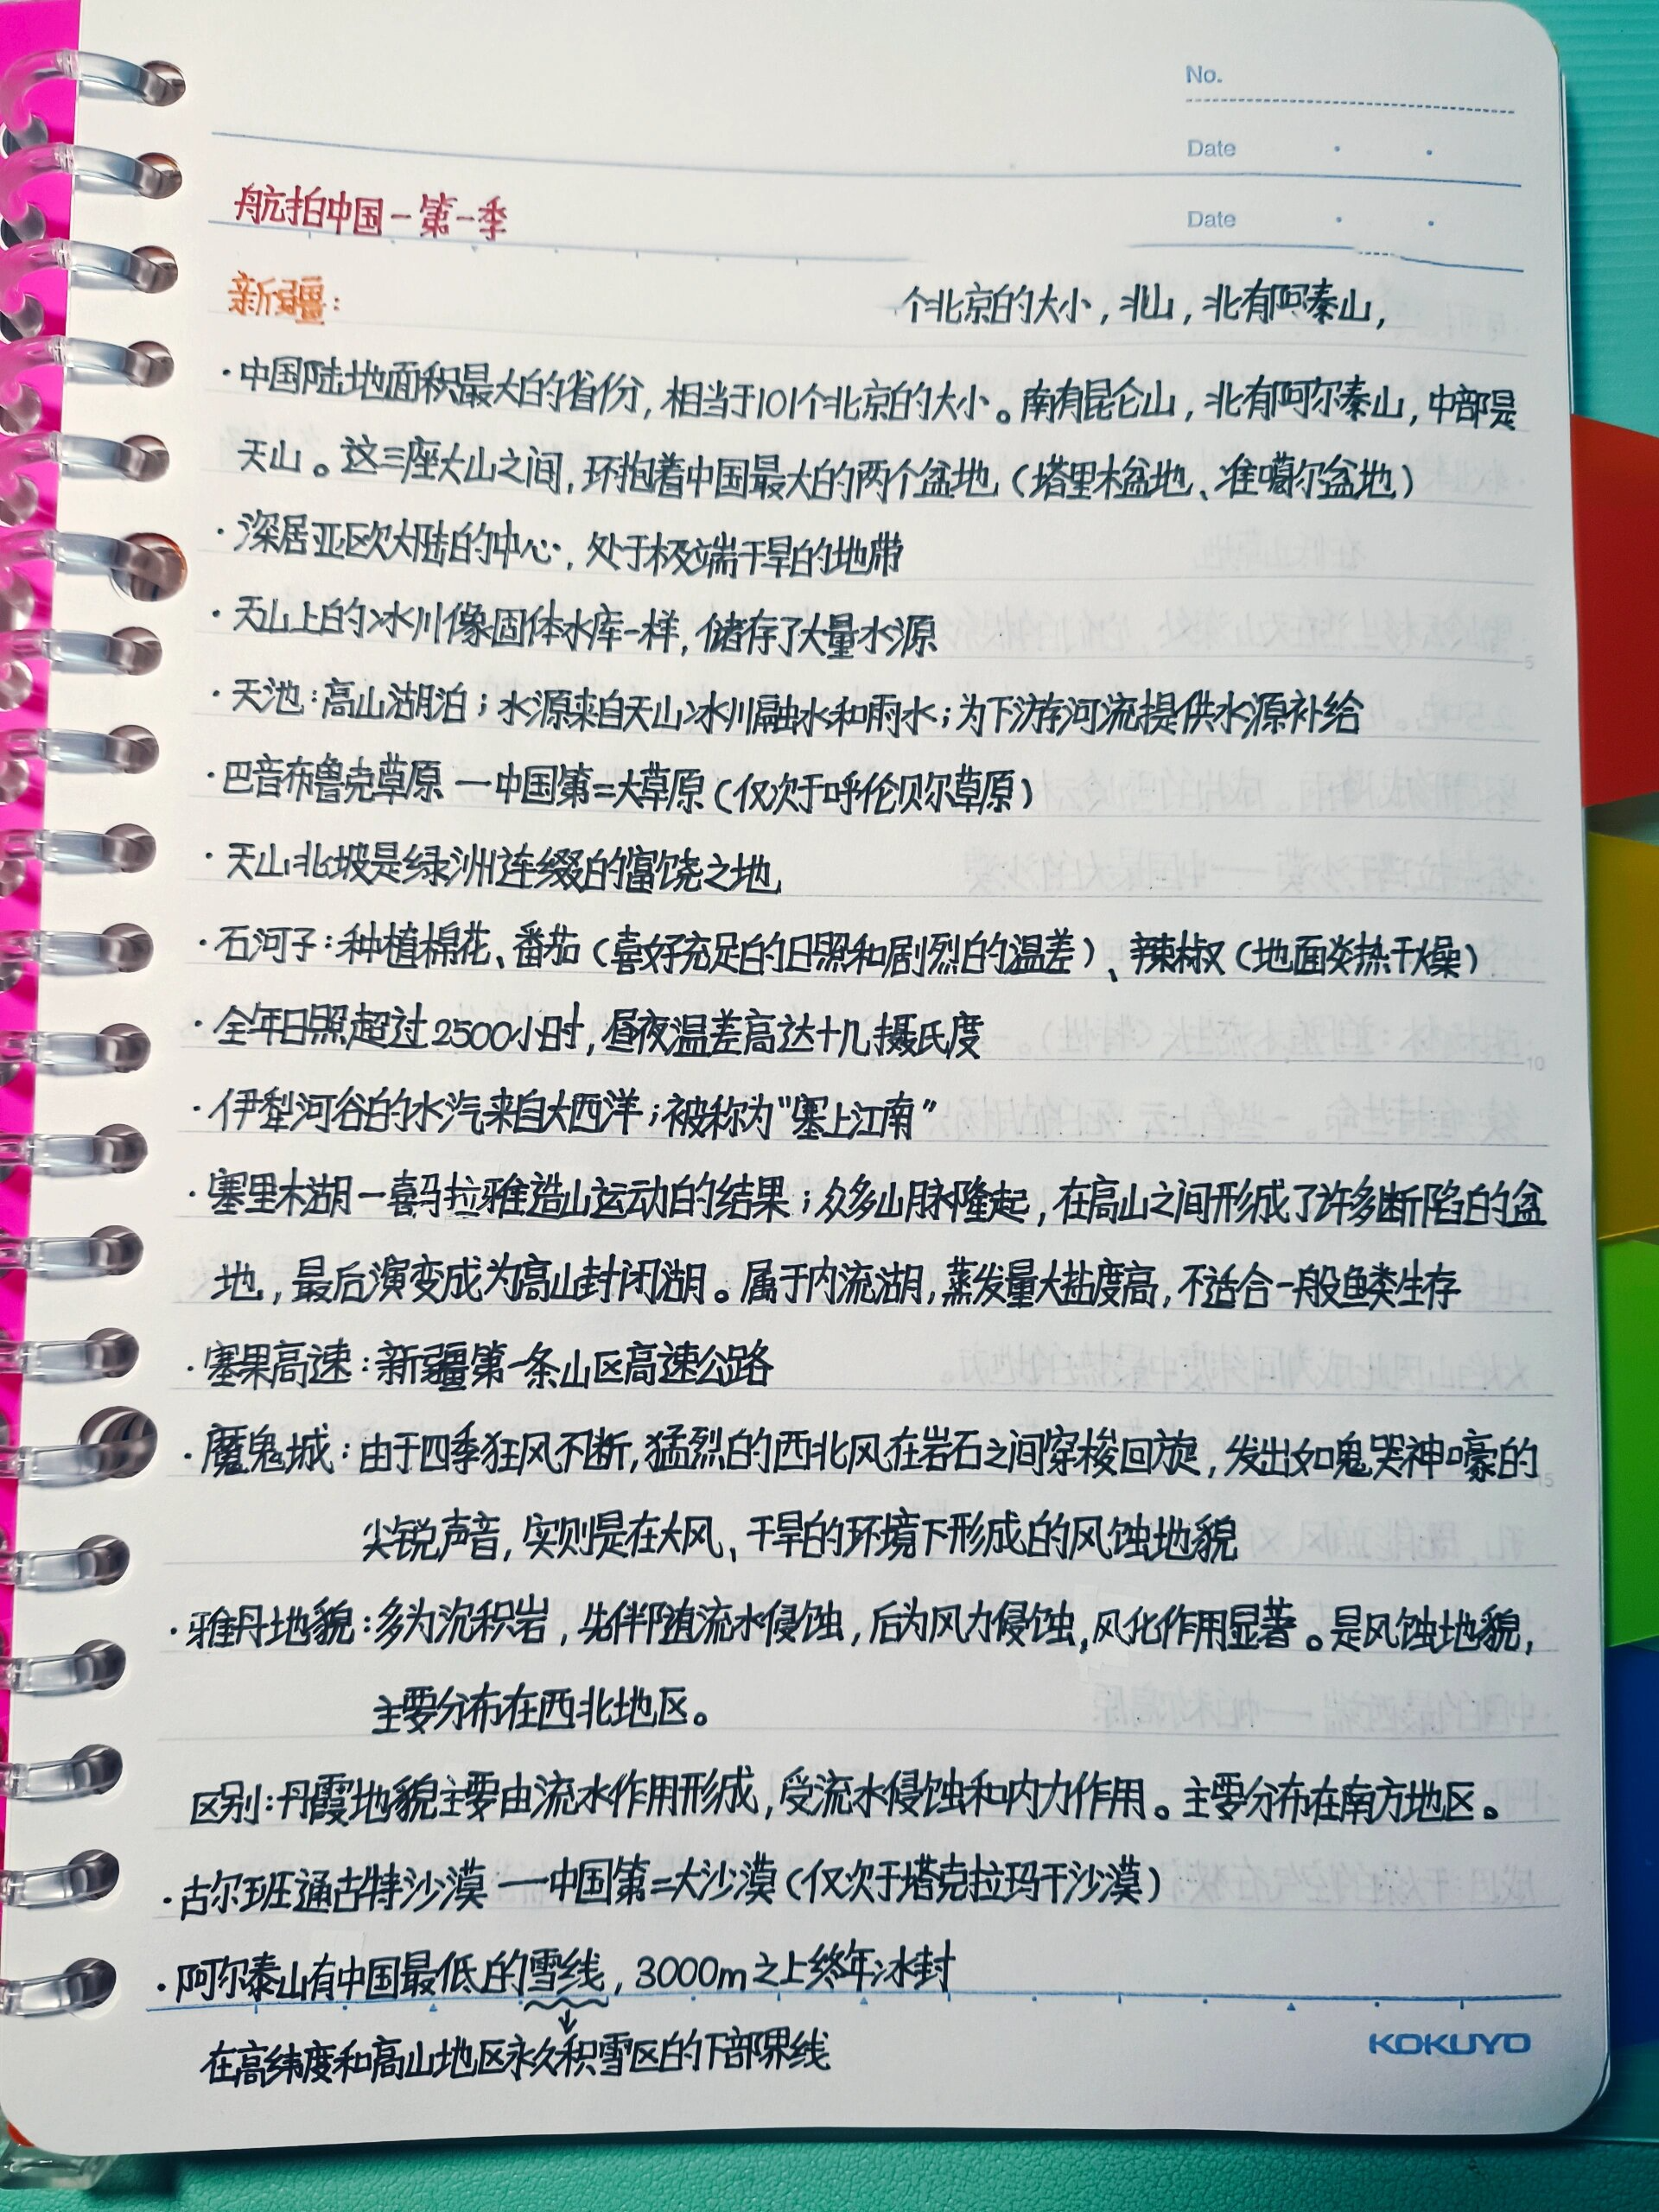 No.
Date
航拍中国-第一季
Date
新疆:
个北京的大小,北山,北有阿泰山,
·中国陆地面积最大的省份,相当于101个北京的大小。南有昆仑山,北有阿尔泰山,中部是
天山。这三座大山之间,环抱着中国最大的两个盆地(塔里木盆地、准噶尔盆地)
·深居亚区欧大陆的中心,处于极端干旱的地带
·天山上的冰川像固体水库一样,储存了大量水源
·天池:高山湖泊;水源来自天山冰川融水和雨水;为下游河流提供水源补给
·巴音布鲁克草原 一中国第二大草原(仅次于呼伦贝尔草原)
·天山北坡是绿洲连缀的富饶之地
·石河子:种植棉花、番茄(喜好充足的日照和剧烈的温差)、辣椒(地面炎热干燥)
·全年日照超过2500小时,昼夜温差高达十几摄氏度
·伊犁河谷的水汽来自大西洋;被称为"塞上江南"
·塞里木湖一喜马拉雅造山运动的结果;众多山脉隆起,在高山之间形成了许多断陷的盆
地,最后演变成为高山封闭湖。属于内流湖,蒸发量大盐度高,不适合一般鱼类生存
·塞果高速:新疆第一条山区高速公路
·魔鬼城:由于四季狂风不断,猛烈的西北风在岩石之间穿梭回旋,发出如鬼哭神嚎的
尖锐声音,实则是在大风、干旱的环境下形成的风蚀地貌
·雅丹地貌:多为沉积岩,先伴随流水侵蚀,后为风力侵蚀,风化作用显著。是风蚀地貌,
主要分布在西北地区。
区别:丹霞地貌主要由流水作用形成,受流水侵蚀和内力作用。主要分布在南方地区。
·古尔班通古特沙漠 一中国第二大沙漠(仅次于塔克拉玛干沙漠)
·阿尔泰山有中国最低的雪线,3000m之上终年冰封
在高纬度和高山地区永久积雪区的下部界线
KOKUYO